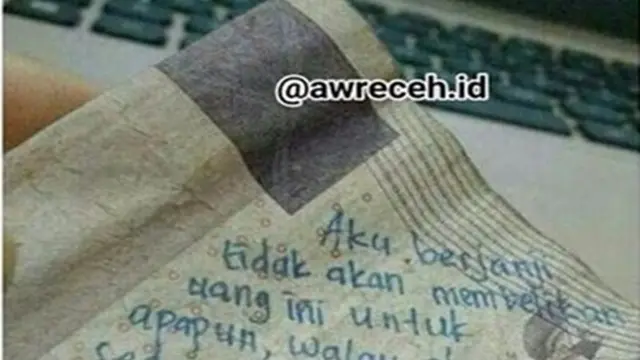 @awreceh.id
Aku berjanji
tidak akan membelikan
uang ini untuk
apapun, walau